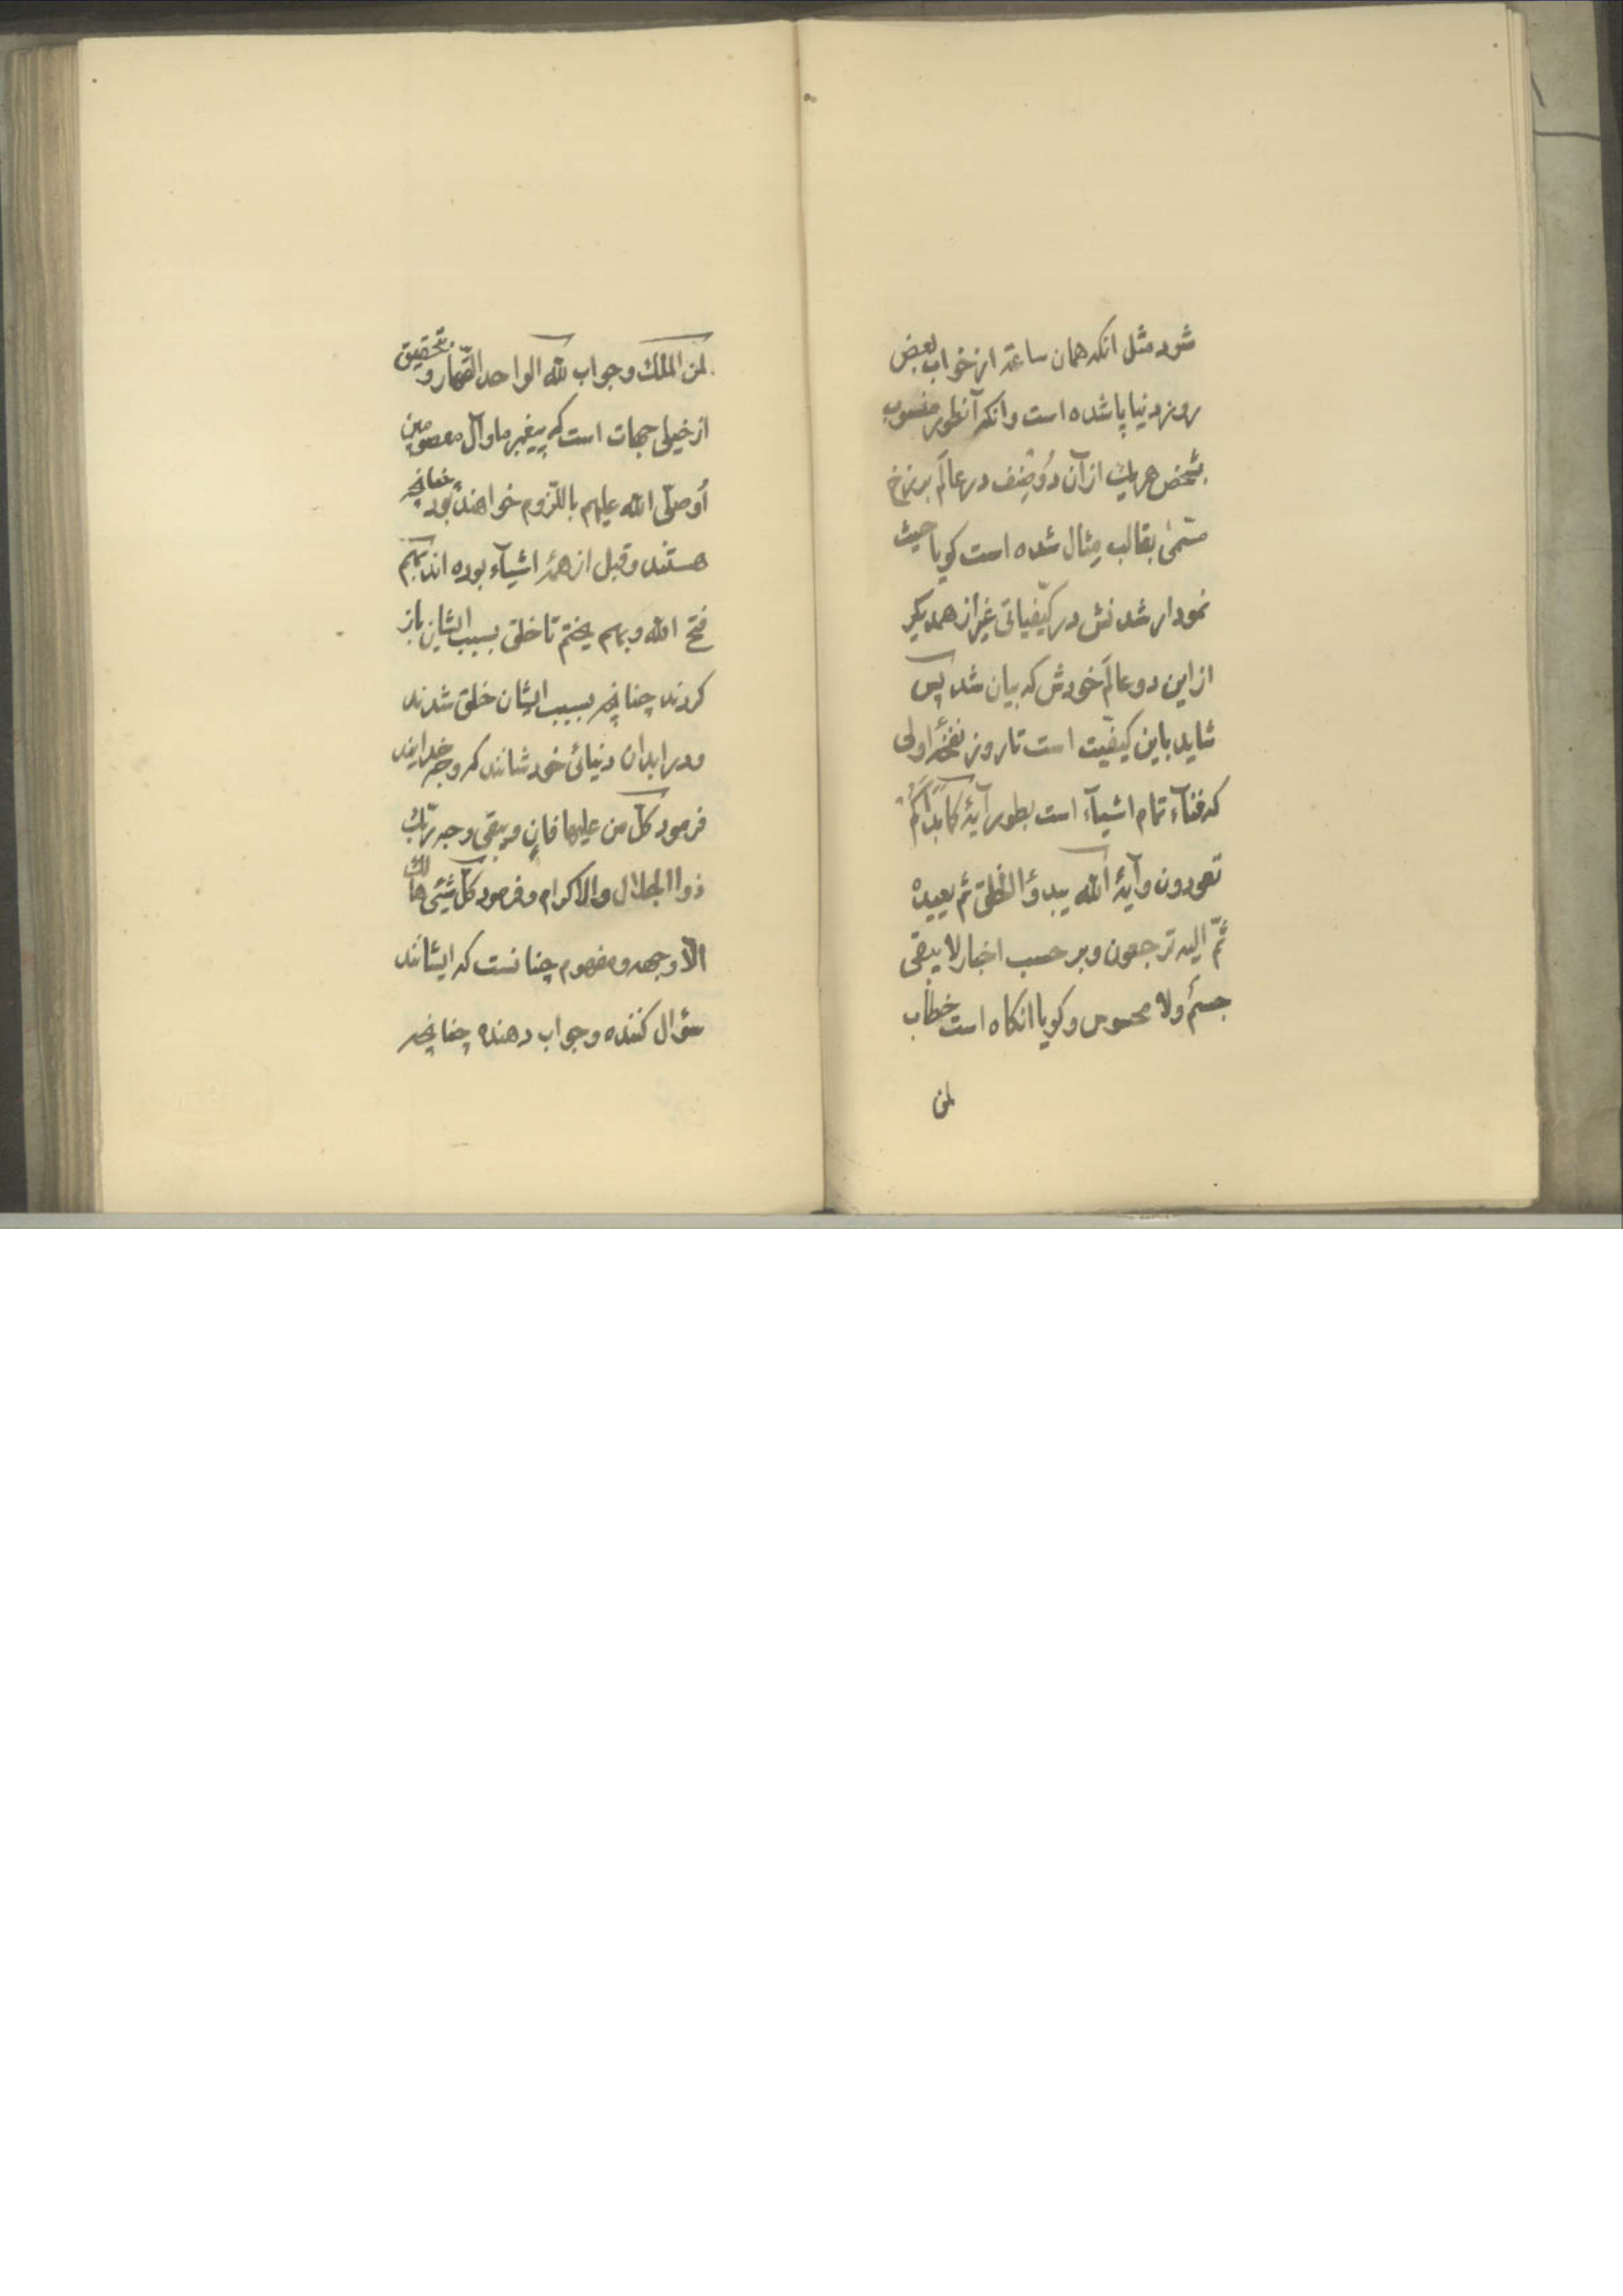 شود مثل انکه همان ساعة از خواب بعض
روز دنیا پا شده است وانکه آنطور منسوب
بشخص هریك از آن دو صِنف در عالَم برزخ
مسمّیٰ بقالب مِثال شده است کویا حیث
نمودار شدنش در کیّفیاتی غیر از همدیکر
از این دو عالَم خودش که بیان شد پس
شاید باین کیفیّت است تا روز نفخهٔ اولی
که فنآء تمام اشیآء است بطور آیهٔ کما بَدَأَکُم
تعودون و آیهٔ الله یبدؤا الخلق ثم یعیده
ثمّ الیه ترجعون و بر حسب اخبار لا یبقی
جسمٌ ولا محسوس و کویا انکاه است خطاب
لمن
لمن الملك وجواب لله الواحد القهّار و تحقیق
از خیلی جهات است که پیغمبر ما وآل معصومین
أو صلّی الله علیهم باللّزوم خواهند بود چنانچه
هستند و قبل از همهٔ اشیآء بوده اند بکم
فتح الله و بهم یختم تا خلق بسبب ایشان باز
کردند چنانچه بسبب ایشان خلق شدند
و در ابدان دنیائی خودشانند که وجه خدایند
فرمود کلّ من علیها فانٍ ویبقی وجه ربّكَ
ذوا الجلال والاکرام و فرمود کلّ شیئی هالك
الّا وجهه و مفهوم چنانست که ایشانَند
سؤال کننده و جواب دهنده چنانچه